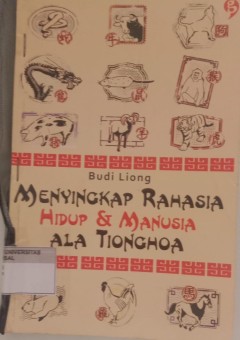 Budi Liong
MENYINGKAP RAHASIA
HIDUP & MANUSIA
ALA TIONGHOA
UNIVERSITAS